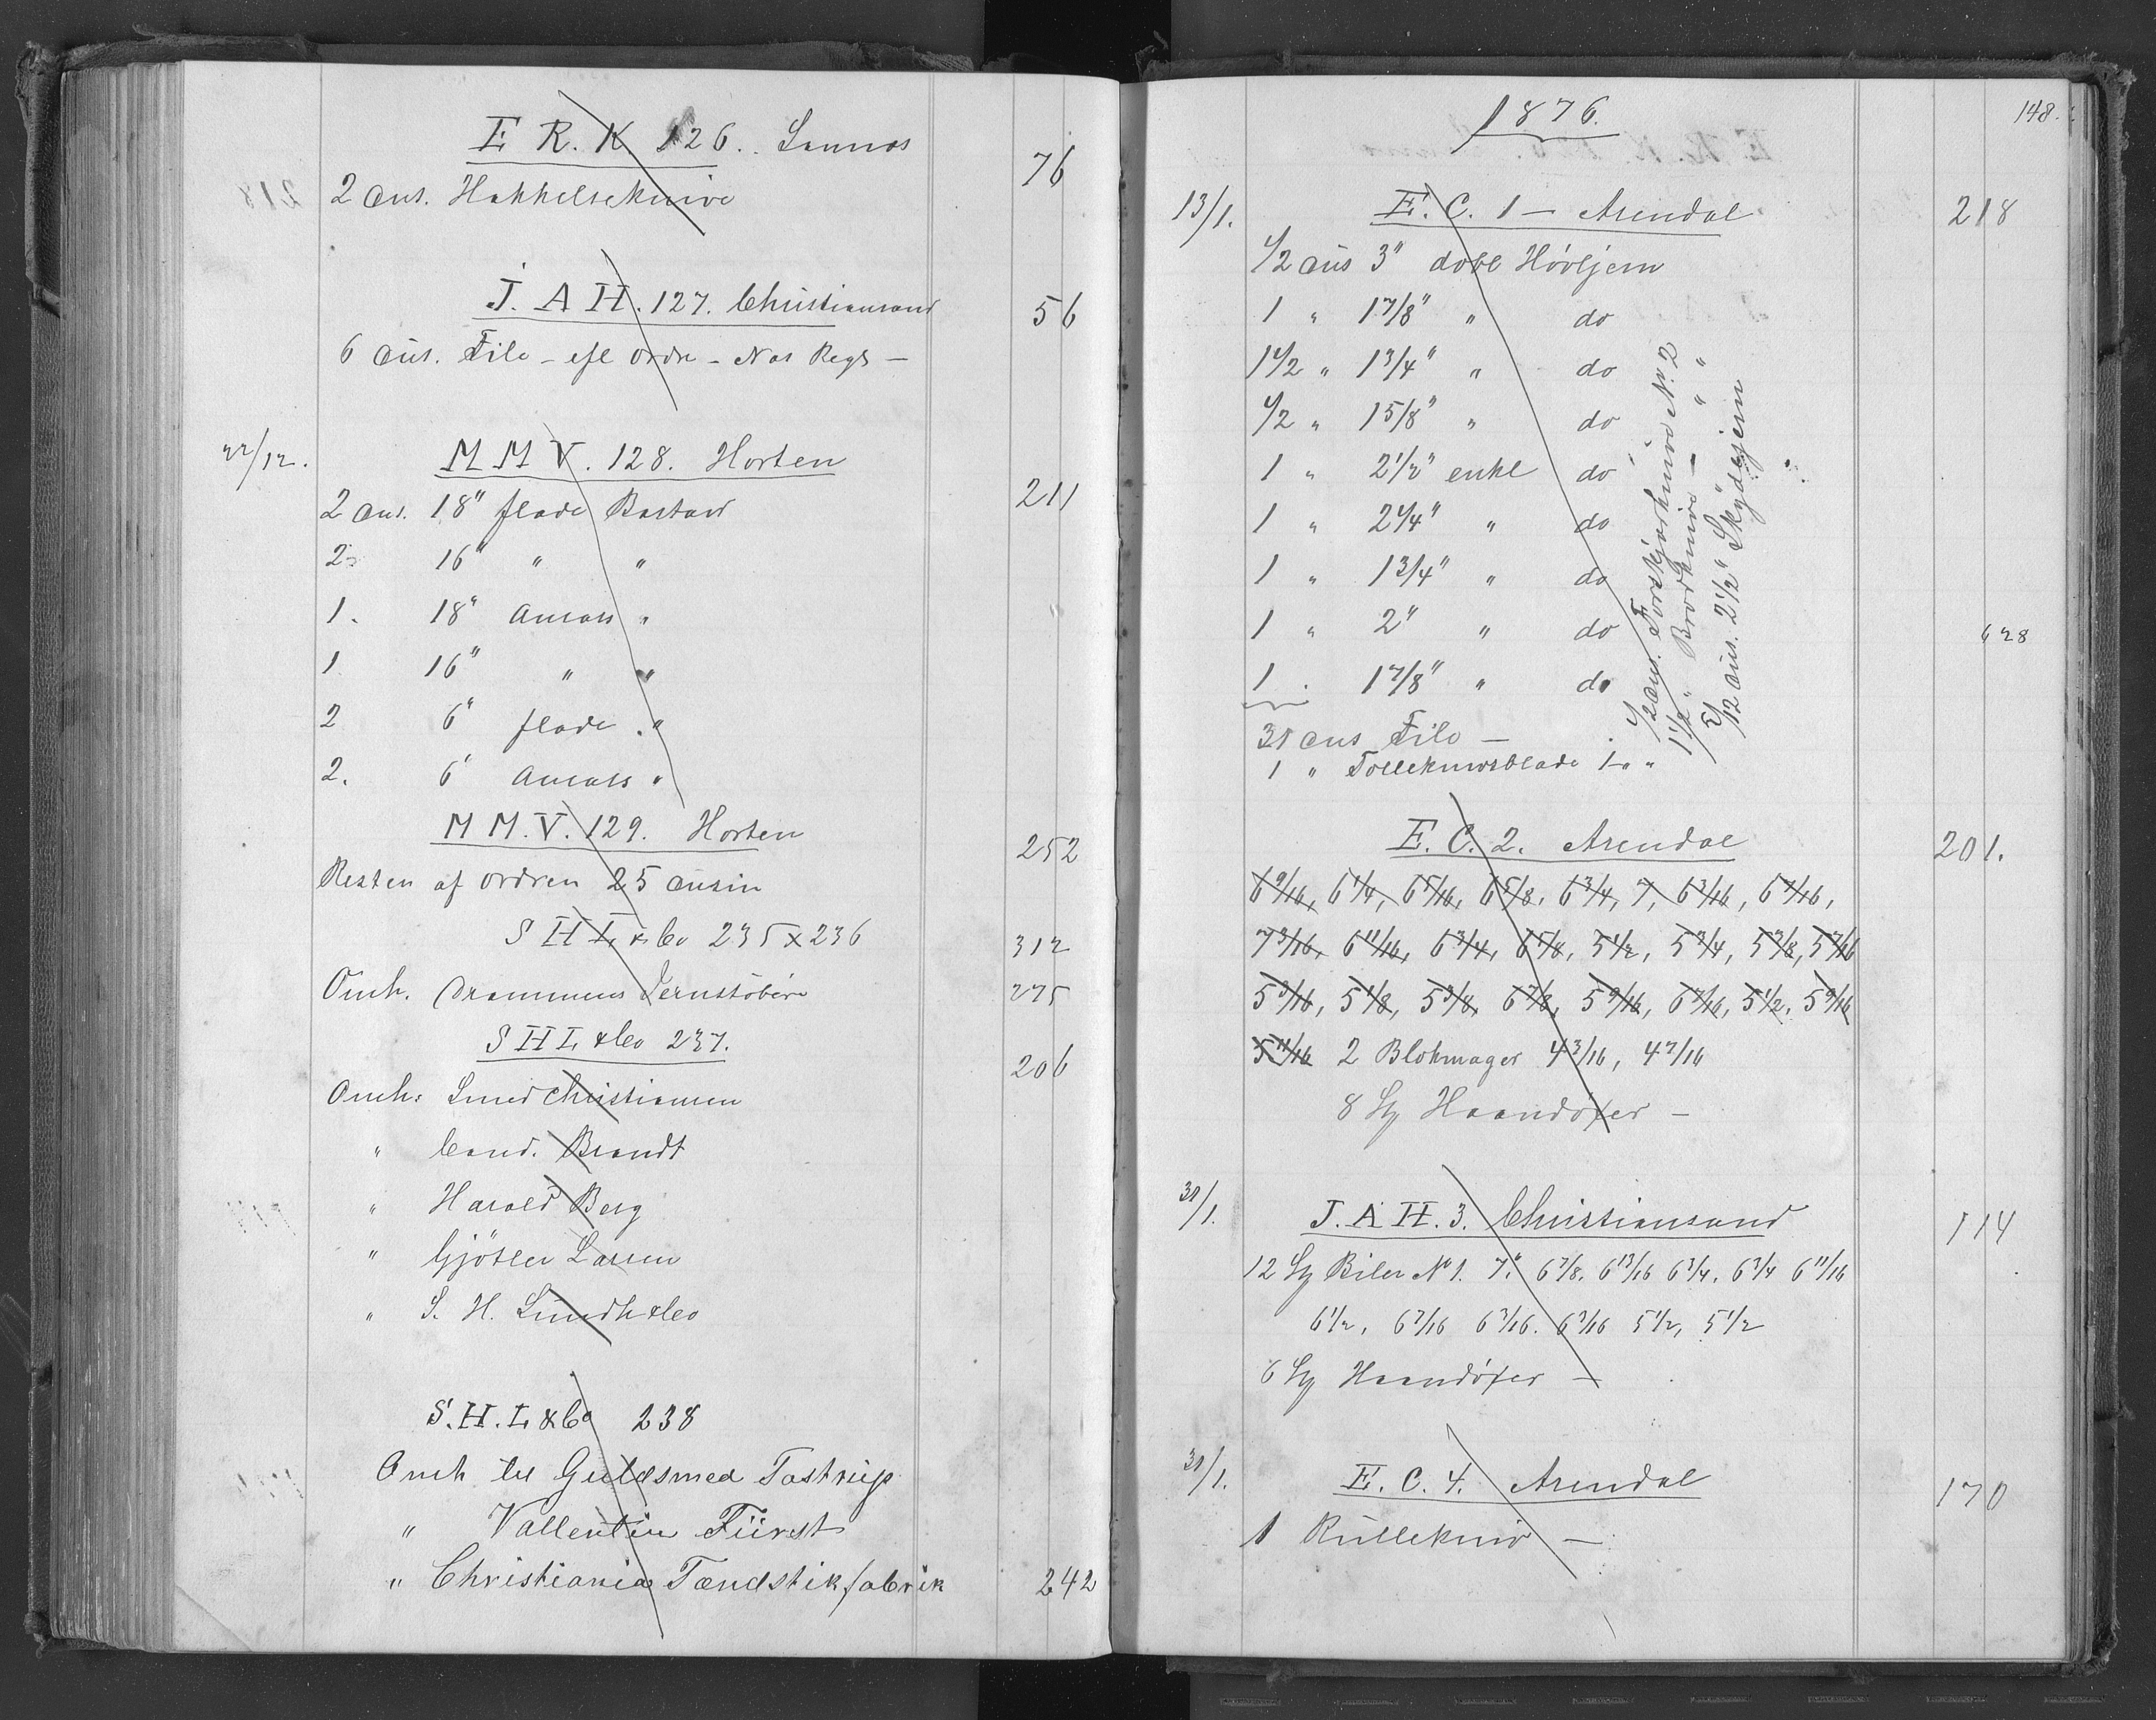 E R. K 126. Sannes 76
2 Dus. Hakkelseknive
J. A H. 127. Christiansand 56
6 Dus. File - efl Ordre - Nos Regs -
22/12. M M V. 128. Horten
2 Dus. 18" flade Bastard 211
2 " 16" " "
1. 18" Ansats "
1 16" " "
2 6" flade "
2. 6" Ansats "
M M. V. 129. Horten 252
Resten af Ordren 25 Dusin
S H L & Co 235 x 236 312
Omh. Drammens Jernstöberi 275
S H L & Co 237. 206
Omh: Smed Christiansen
" Cand. Brandt
" Harald Berg
" Gjörtler Larsen
" S. H. Lundh & Co
S. H. L & Co 238
Omh til Guldsmed Tostrup
" Vallentin Fürst
" Christiania Tændstikfabrik 242
1876. 148.
13/1. E. C. 1 - Arendal 218
1/2 Dus 3" dobl Høvljern
1 " 1 7/8" " do
1 1/2 " 1 3/4" " do
1/2 " 1 5/8" " do
1 " 2 1/2" enkl do
1 " 2 1/4" " do
1 " 1 3/4" " do
1 " 2" " do 628
1 " 1 7/8" " do
1/2 Dus. Forskjærknive No. 2
1 1/2 " Brødknive - " "
5/12 Dus. 2 1/2" Skydejern
31 Dus File -
1 " Tolleknivsblade 1 " "
E. C. 2. Arendal 201.
6 9/16, 6 1/4, 6 5/16, 6 5/8, 6 3/4, 7, 6 3/16, 6 7/16,
7 3/16, 6 11/16, 6 3/4, 6 5/8, 5 1/2, 5 3/4, 5 3/8, 5 7/16
5 3/16, 5 1/8, 5 3/8, 6 7/8, 5 9/16, 6 7/16, 5 1/2, 5 9/16
5 11/16 2 Blokmager 4 3/16, 4 7/16
8 St Haandøxer -
31/1. J. A H. 3. Christiansand 114
12 St Biler No 1. 7" 6 7/8. 6 13/16 6 3/4. 6 3/4 6 11/16
6 1/2, 6 7/16 6 7/16. 6 3/16 5 1/2, 5 1/2
6 St Haandøxer -
31/1. E. C. 4. Arendal 170
1 Rullekniv -